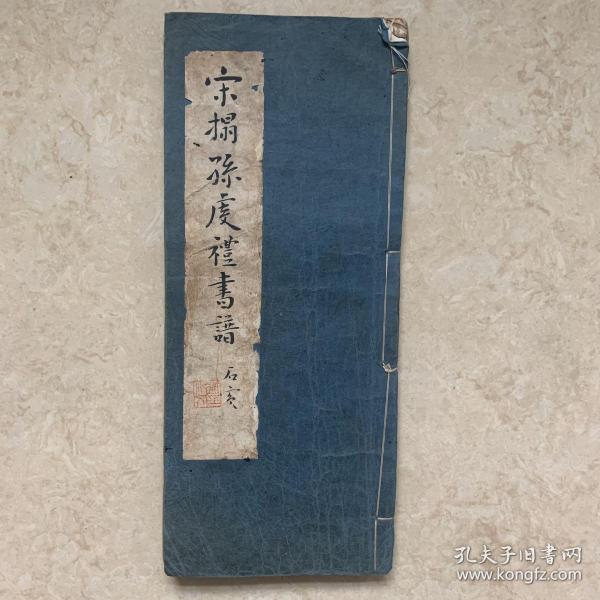 宋搨孫虔禮書譜
石寅
孔夫子旧书网
www.kongfz.com